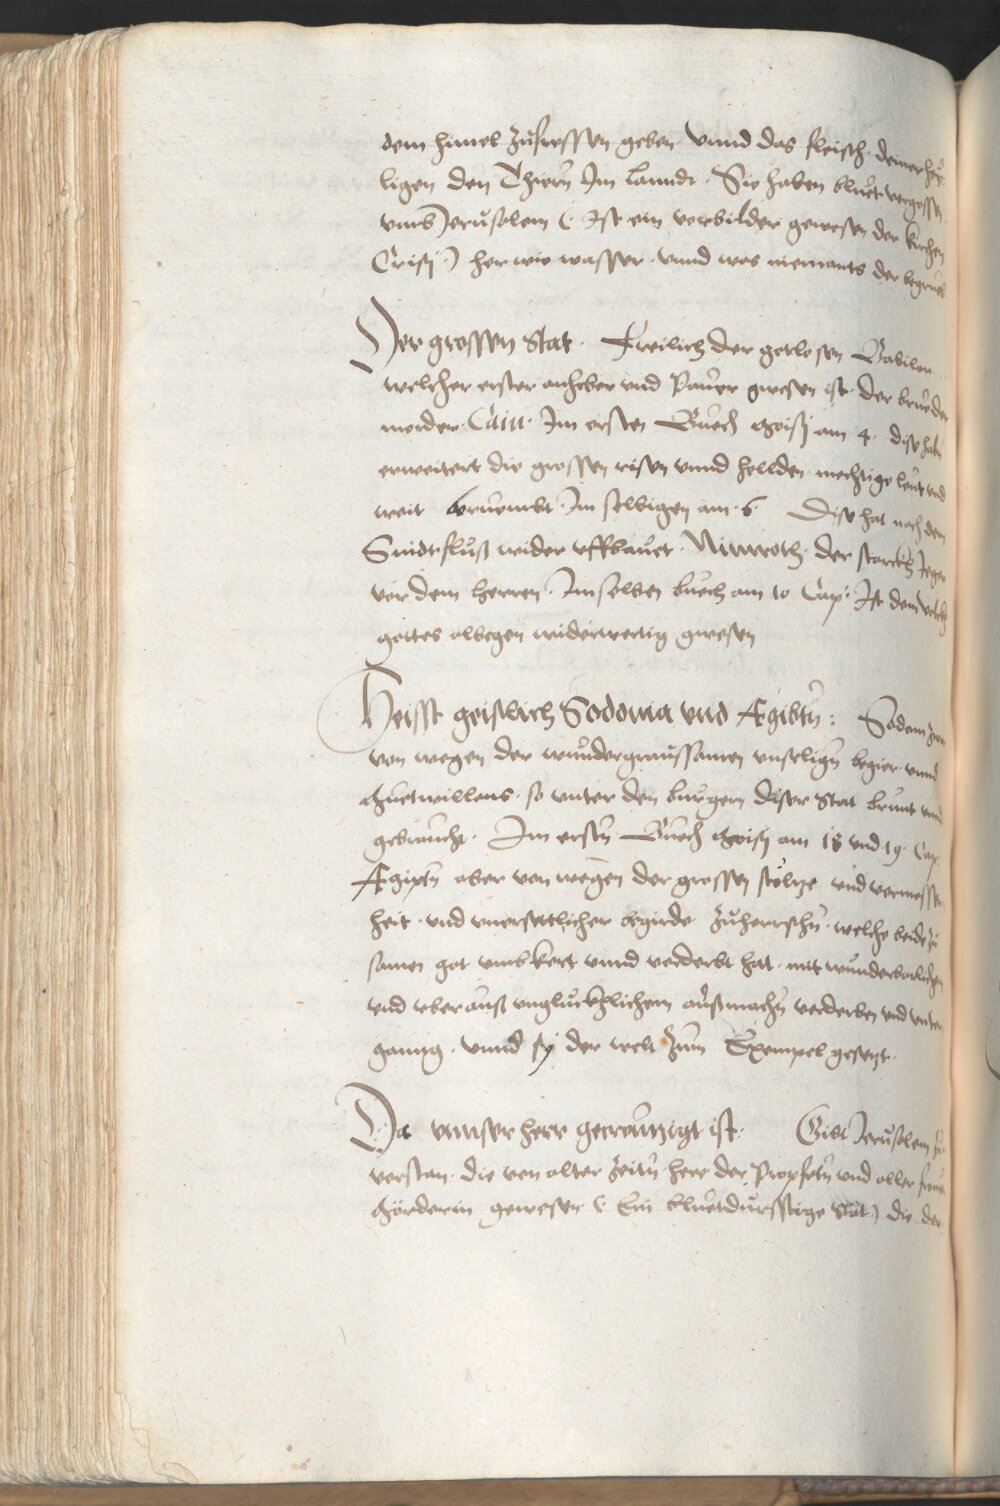 dem himel zufressen geben. vnnd das fleisch. deiner hey¬
ligen den Thiern Jm lanndt. Sie haben bluet vergossen.
vmb Jerusalem (. Jst ein verbilder gewesen der kirchen
Cristi.) her wie wasser. vnnd was niemants der begrueb
Der grossen Stat. Freilich der gotlosen Babilon.
welcher erster anheber vnd Pawer gwesen ist. der brueder
merder. Cain. Jm ersten Buech Moisi am 4. dise habn
erweitert die grossen risen vnnd hellden. mechtige leut vnd
weit beruembt. Jm selbigen am. 6. Dise hat nach dem
Sindtfluß wider vffbauet. Nimroth. der starckh Jeger
vor dem herren. Jm selben buech am 10 Cap. Jst dem volckh
gottes albegen widerwertig gwesen
Heisst geistlich Sodoma vnd Ægibtn: Sodom zwar
von wegen der wundergraussamen vnseligen begier. vnnd
Muetwillens. so vnter den burgern diser Stat brunt vnd
gebraucht. Jm erstn Buech Moisi am 18 vnd 19. Cap.
Ægiptn aber von wegen der grossen stoltze vnd vermessen
heit. vnd vnersettlicher Begirde zuherrschn. welche beide zu
samen got vmbkert vnnd verderbt hat. mit wunderbarlichen
vnd vberauß vngluckhlichem außmachn verderben vnd vnter
ganng. vnnd sy der welt zum Exempel gesetzt.
Da vnnser herr gecreutzigt ist. Gibt Jerusalem zu
verstan. die von alter zeitn here der Propfetn vnd aller frumen
Mörderin gewesen (. Ein bluetdurstige Stat) die der